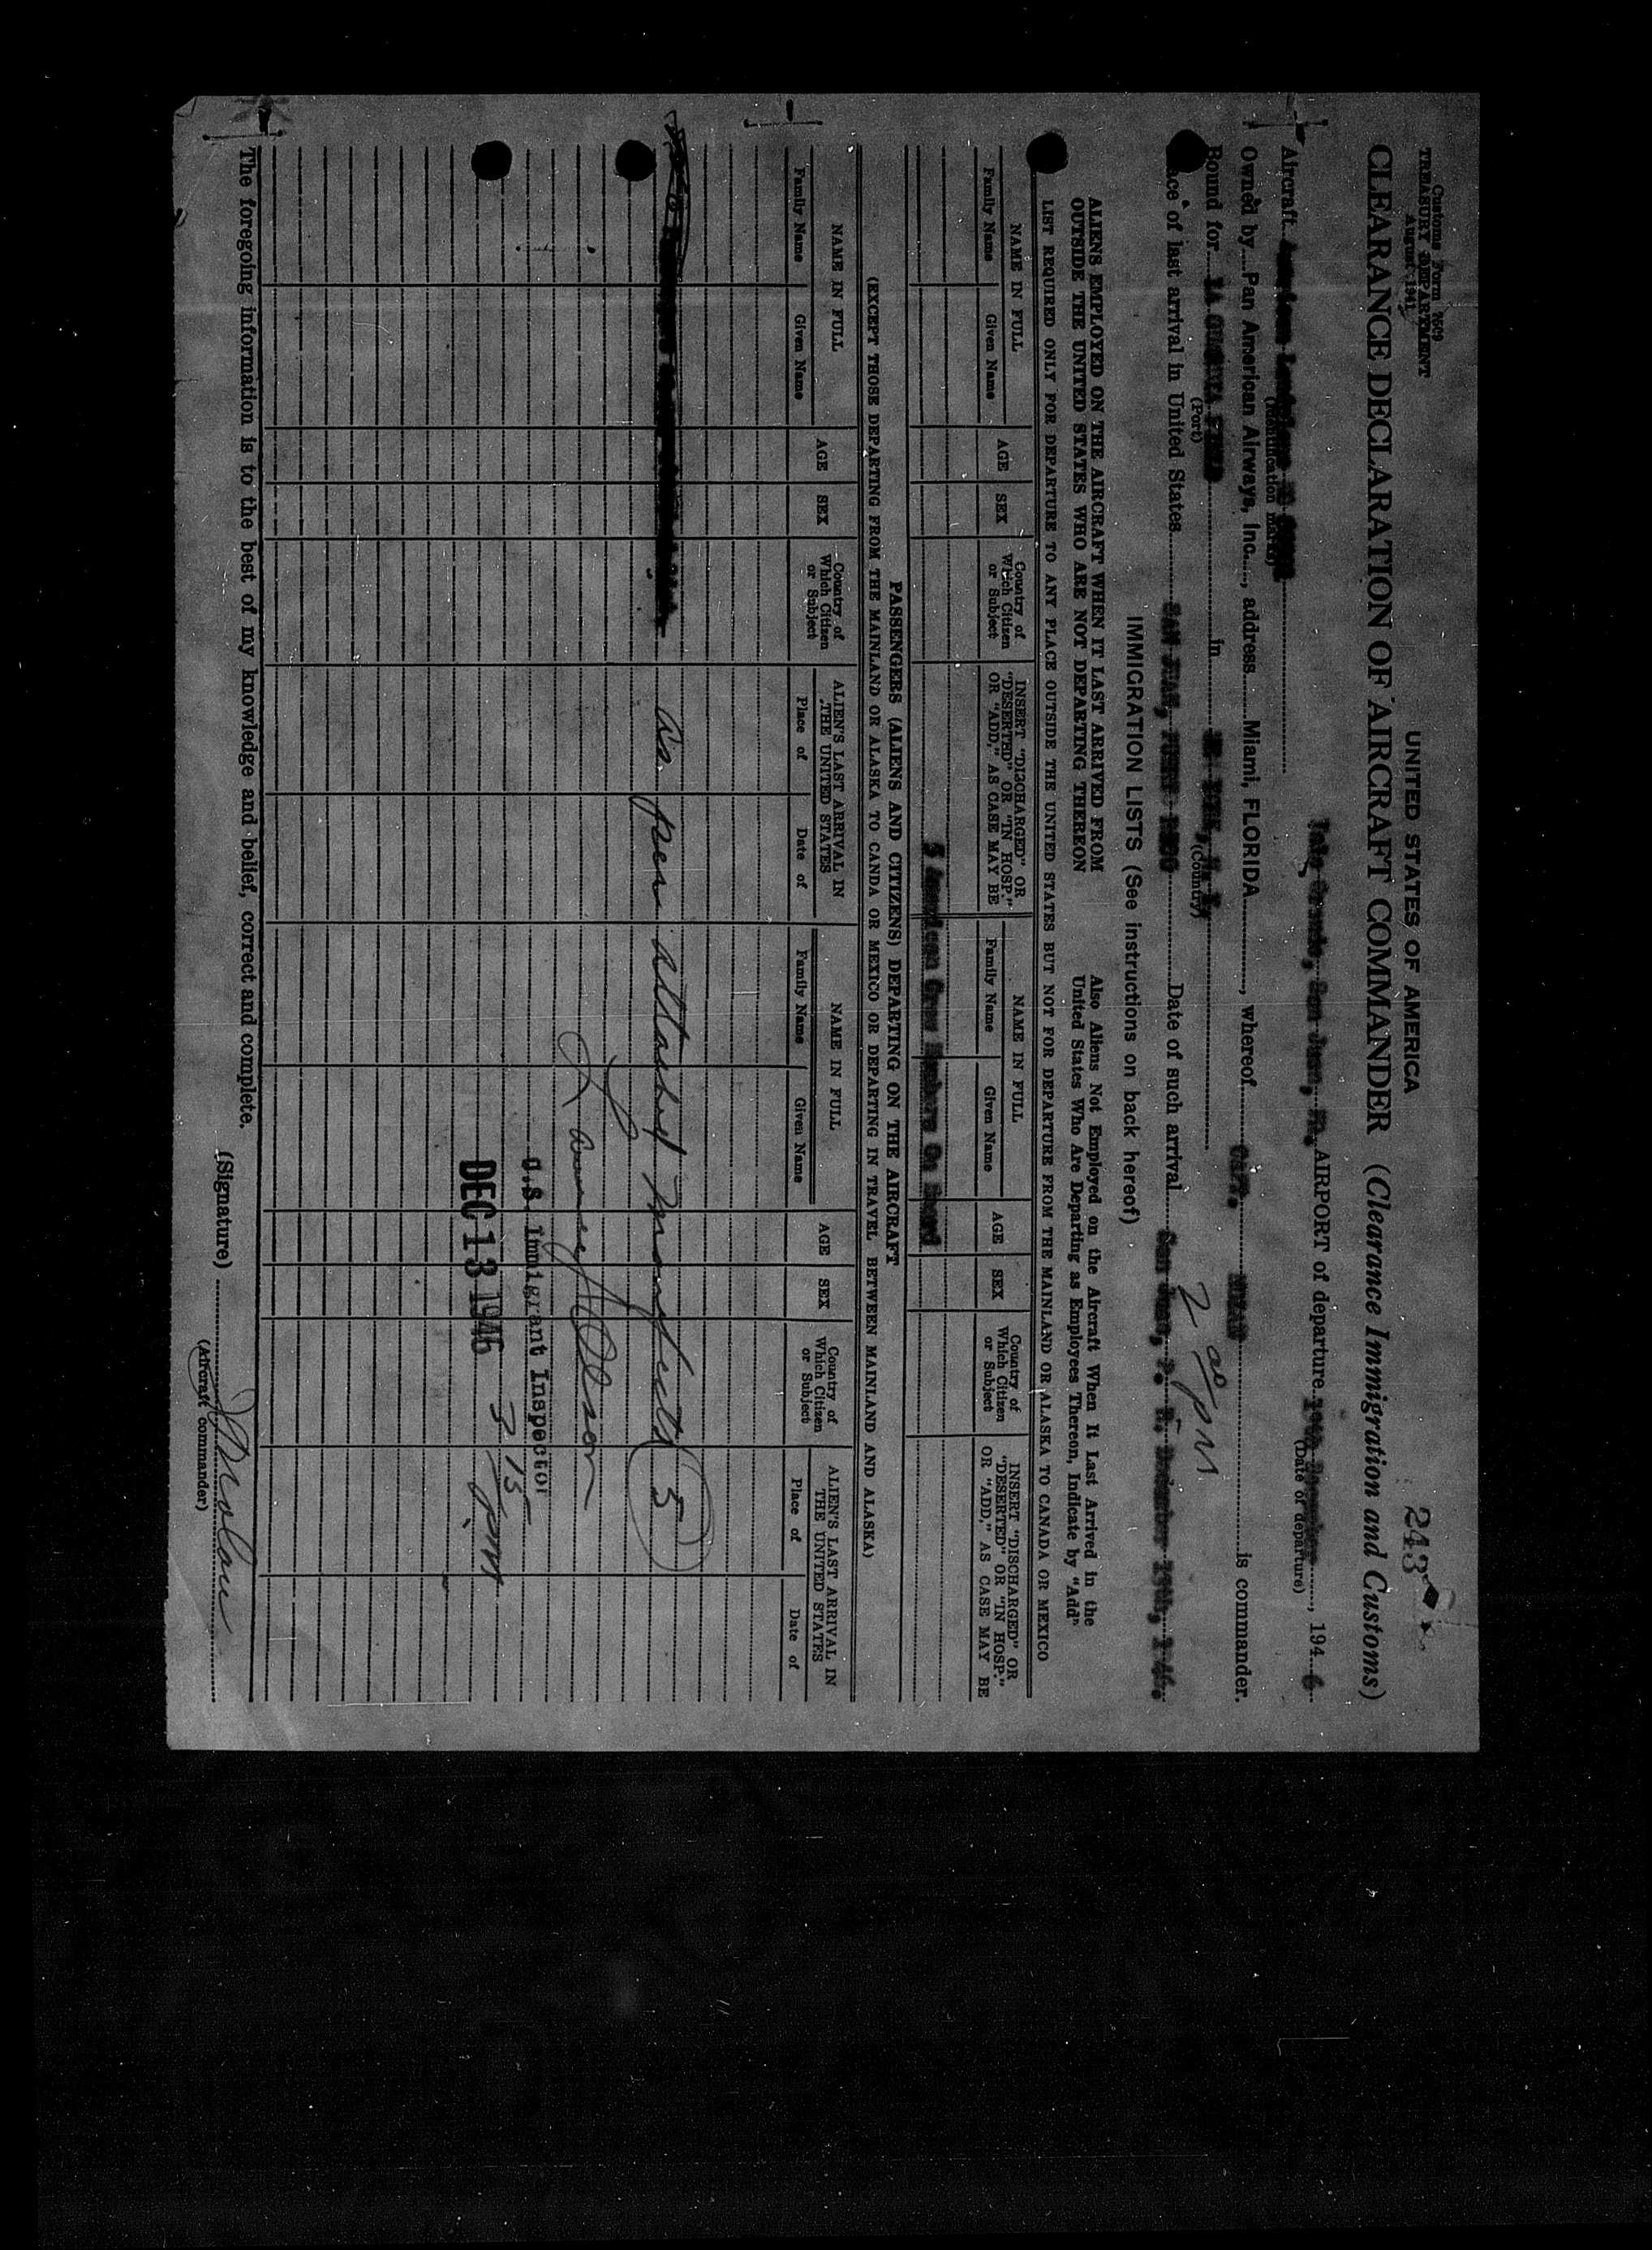 Customs Form 7509
TREASURY DEPARTMENT
August, 1941
243
UNITED STATES OF AMERICA
CLEARANCE DECLARATION OF AIRCRAFT COMMANDER (Clearance Immigration and Customs)
Isla Grande, San Juan, AIRPORT of departure December, 194 6
(Date of departure)
Aircraft
(Identification marks)
Owned by Pan American Airways, Inc., address Miami, FLORIDA, whereof Capt. is commander.
Bound for LA GUARDIA FIELD in
(Port) (Country)
2 00 PM
Place of last arrival in United States SAN JUAN, PUERTO RICO Date of such arrival San Juan, P. R. December 13th, 1946.
IMMIGRATION LISTS (See instructions on back hereof)
ALIENS EMPLOYED ON THE AIRCRAFT WHEN IT LAST ARRIVED FROM OUTSIDE THE UNITED STATES WHO ARE NOT DEPARTING THEREON
Also Aliens Not Employed on the Aircraft When It Last Arrived in the United States Who Are Departing as Employees Thereon, Indicate by "Add"
LIST REQUIRED ONLY FOR DEPARTURE TO ANY PLACE OUTSIDE THE UNITED STATES BUT NOT FOR DEPARTURE FROM THE MAINLAND OR ALASKA TO CANADA OR MEXICO
NAME IN FULL AGE SEX Country of Which Citizen or Subject INSERT "DISCHARGED" OR "DESERTED" OR "IN HOSP." OR "ADD," AS CASE MAY BE NAME IN FULL AGE SEX Country of Which Citizen or Subject INSERT "DISCHARGED" OR "DESERTED" OR "IN HOSP." OR "ADD," AS CASE MAY BE
Family Name Given Name Family Name Given Name
5 American Crew Members On Board
PASSENGERS (ALIENS AND CITIZENS) DEPARTING ON THE AIRCRAFT
(EXCEPT THOSE DEPARTING FROM THE MAINLAND OR ALASKA TO CANDA OR MEXICO OR DEPARTING IN TRAVEL BETWEEN MAINLAND AND ALASKA)
NAME IN FULL AGE SEX Country of Which Citizen or Subject ALIEN'S LAST ARRIVAL IN THE UNITED STATES NAME IN FULL AGE SEX Country of Which Citizen or Subject ALIEN'S LAST ARRIVAL IN THE UNITED STATES
Family Name Given Name Place of Date of Family Name Given Name Place of Date of
as per attached manifests 5
Olson
U.S. Immigrant Inspector
DEC 13 1946 3 15 pm
The foregoing information is to the best of my knowledge and belief, correct and complete.
(Signature)
(Aircraft commander)